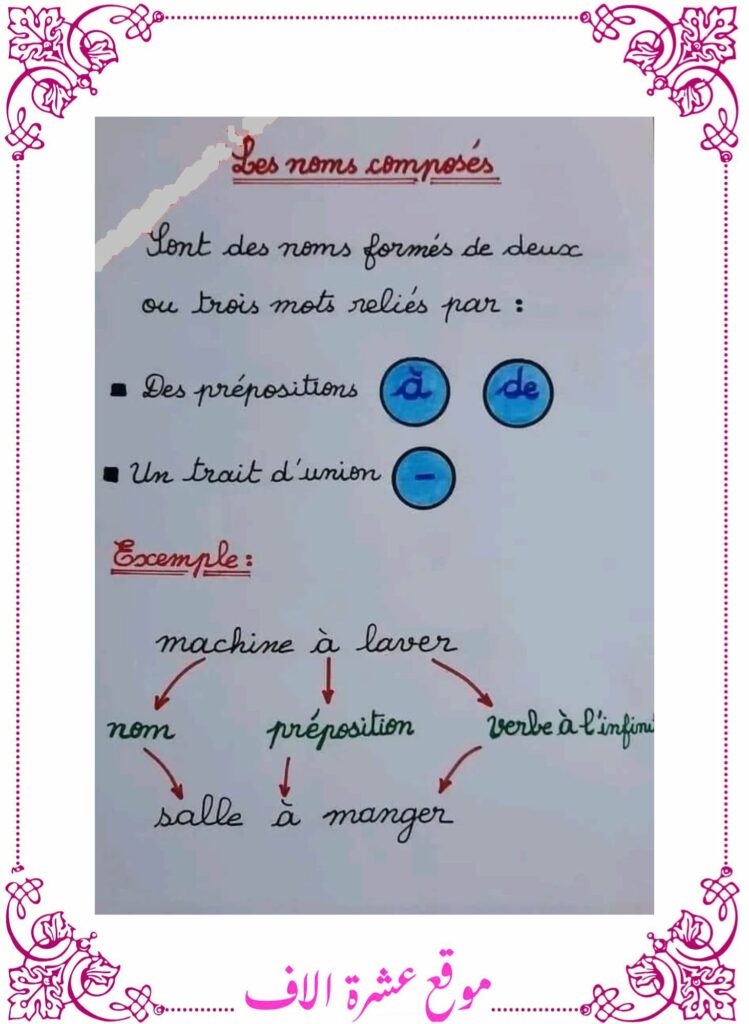 Les noms composés
Sont des noms formés de deux
ou trois mots reliés par :
▪ Des prépositions à de
▪ Un trait d'union -
Exemple :
machine à laver
nom préposition verbe à l'infini
salle à manger
موقع عشرة الاف